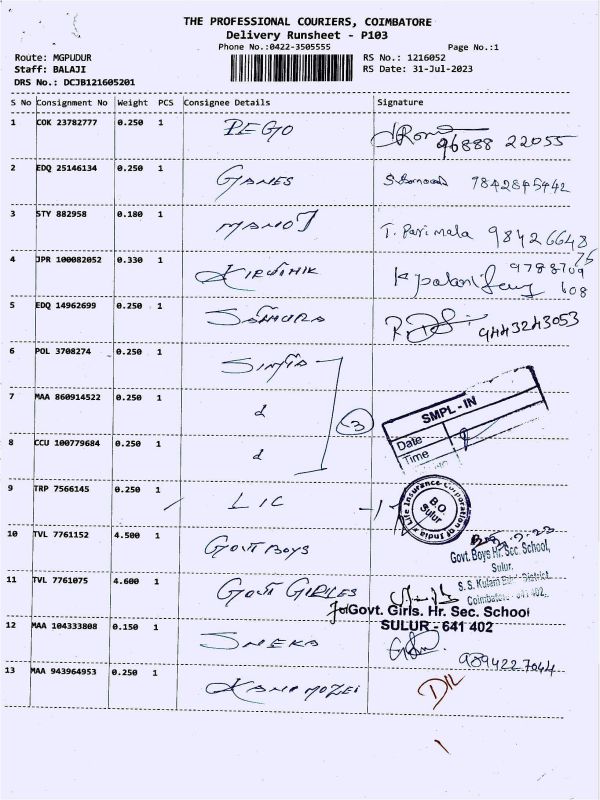 THE PROFESSIONAL COURIERS, COIMBATORE
Delivery Runsheet - P103
Phone No.:0422-3505555
Page No.:1
Route: MGPUDUR
RS No.: 1216052
Staff: BALAJI
RS Date: 31-Jul-2023
DRS No.: DCJB121605201
S No Consignment No Weight PCS Consignee Details Signature
1 COK 23782777 0.250 1 PEGO
96888 22055
2 EDQ 25146134 0.250 1 GANES 7842845442
3 STY 882958 0.180 1 MANOJ T. Parimala 98426648
76
4 JPR 100082052 0.330 1 KIRUTHIK 9788709
608
5 EDQ 14962699 0.250 1 9443243053
6 POL 3708274 0.250 1
7 MAA 860914522 0.250 1 d
3
SMPL - IN
Date
Time
8 CCU 100779684 0.250 1 d
9 TRP 7566145 0.250 1 LIC
Life Insurance Corporation of India
B.O.
Sulur
10 TVL 7761152 4.500 1 GOVT BOYS
Govt. Boys Hr. Sec. School,
Sulur,
S. S. Kulam District
Coimbatore - 641 402.
11 TVL 7761075 4.600 1 GOVT GIRLES
For Govt. Girls. Hr. Sec. School
SULUR - 641 402
12 MAA 104333808 0.150 1 SNEKA
9894227044
13 MAA 943964953 0.250 1 KANIMOZEI
D/L